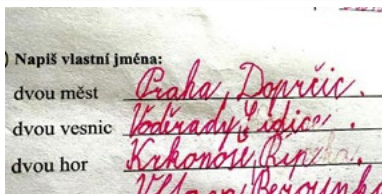 ) Napiš vlastní jména:
dvou měst Praha, Doprčic.
dvou vesnic Voděrady, Lidice.
dvou hor Krkonoše, Říp
Vltava, Berounk